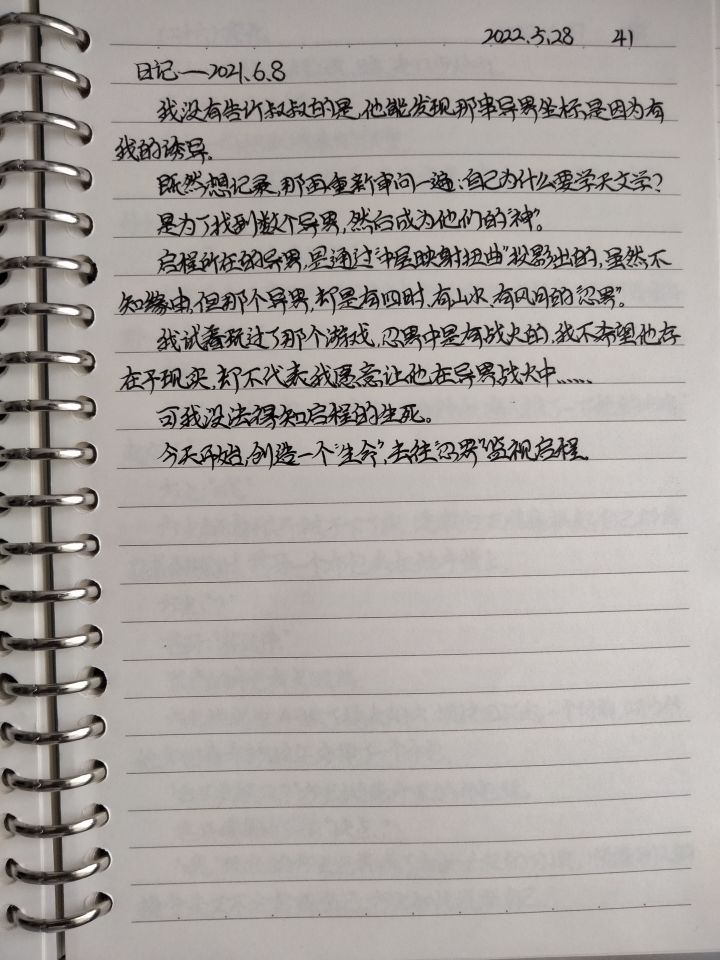 2022.5.28 41
日记——2021.6.8
我没有告诉叔叔的是,他能发现那串异界坐标,是因为有
我的诱导。
既然想记录,那再重新审问一遍:自己为什么要学天文学?
是为了找到数个异界,然后成为他们的"神"。
启程所在的异界,是通过"中层映射扭曲"投影出的,虽然不
知缘由,但那个异界,却是有四时,有山水,有风月的"忍界"。
我试着玩过了那个游戏,忍界中是有战火的,我不希望他存
在于现实,却不代表我愿意让他在异界战火中……
可我没法得知启程的生死。
今天开始,创造一个"生命",去往"忍界"监视启程。